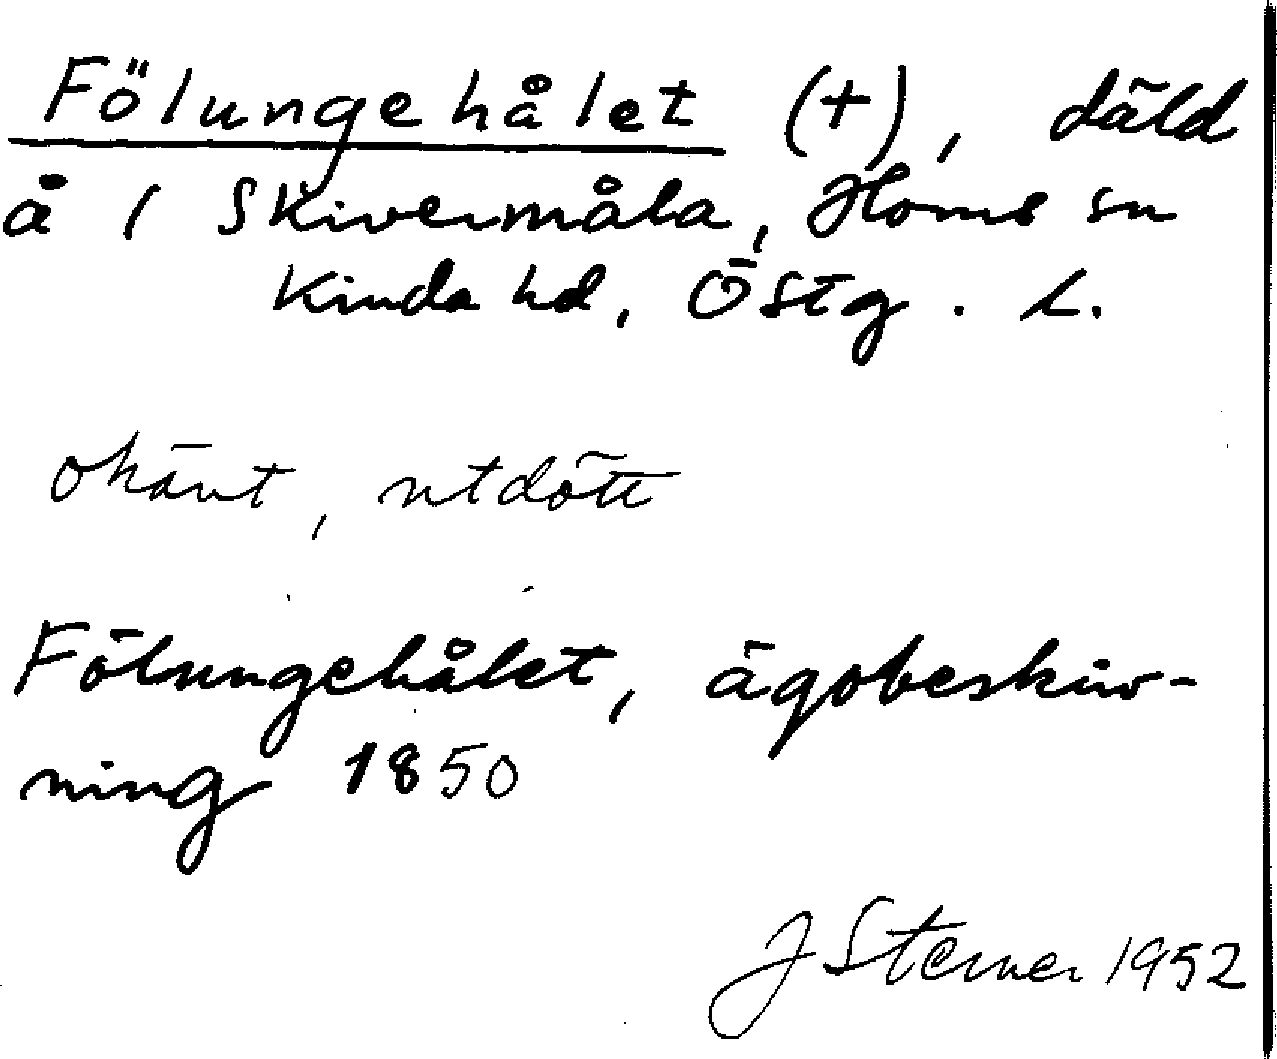 Fölungehålet (+), däld
å 1 Skivermåla, Horns sn
Kinda hd, Östg. l.
okänt, utdött
Fölungehålet, ägobeskriv-
ning 1850
J Sterner 1952